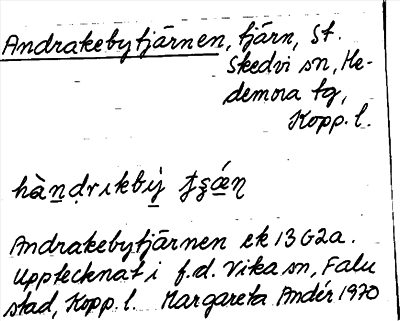 Andrakebytjärnen, tjärn, St.
Skedvi sn, He-
demora tg,
Kopp. l.
hàn̲dṛıkbi̲j
Andrakebytjärnen ek 13G2a.
Upptecknat i f.d. Vika sn, Falu
stad, Kopp. l. Margareta Andér 1970